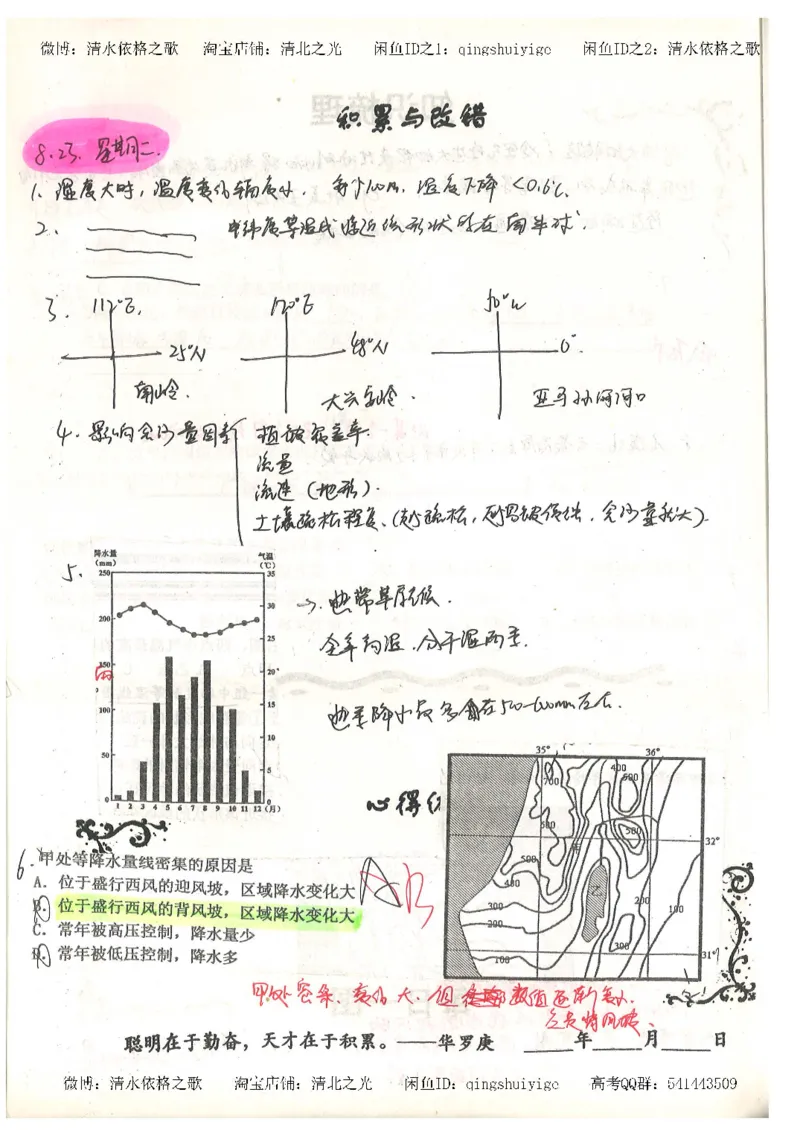 微博：清水依格之歌 淘宝店铺：清北之光 闲鱼ID之1：qingshuiyige 闲鱼ID之2：清水依格之歌
积累与改错
8.23. 星期二.
1. 湿度大时，温度变化幅度小. 每个100m，温度下降<0.6℃.
2. 中纬度等温线接近 形状 在南半球.
3. 112°E. 120°E 50°W
25°N 48°N 0°.
南岭. 大兴安岭. 亚马孙河河口
4. 影响含沙量因素 植被覆盖率.
流量
流速（地形）.
土壤疏松程度.（越疏松, 含沙量越大).
5. 降水量 (mm) 气温 (℃)
250 35
200 30
25
150 20
100 15
10
50 5
0 0
1 2 3 4 5 6 7 8 9 10 11 12 (月)
雨
→ 热带草原气候.
全年高温. 分干湿两季.
热季降水
35° 36°
700 400 600
500 500
32°
甲
500
400 乙
300 200 100
200
300
100 31°
心得
6. 甲处等降水量线密集的原因是
A. 位于盛行西风的迎风坡，区域降水变化大
B. 位于盛行西风的背风坡，区域降水变化大
C. 常年被高压控制，降水量少
D. 常年被低压控制，降水多
A B
甲处密集、变化大、但 数值逐渐变小.
背风坡、
聪明在于勤奋，天才在于积累。——华罗庚 年 月 日
微博：清水依格之歌 淘宝店铺：清北之光 闲鱼ID：qingshuiyige 高考QQ群：541443509